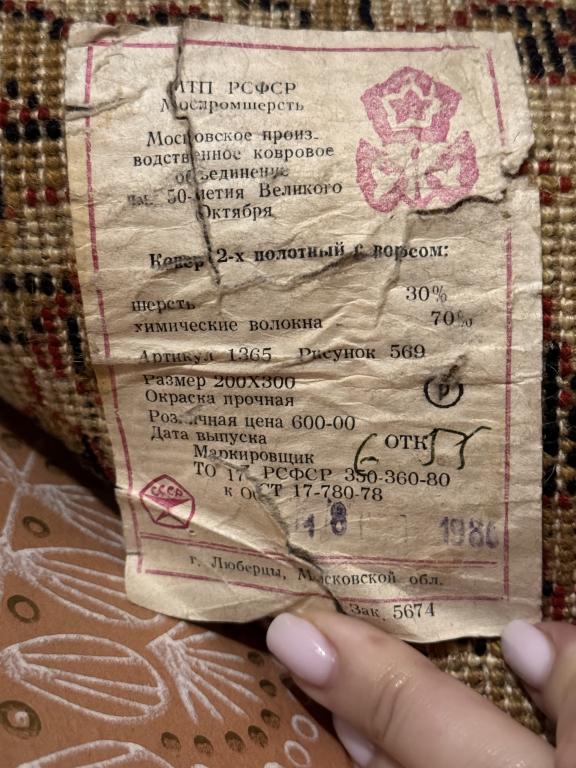 МТП РСФСР
Моспромшерсть
Московское произ-
водственное ковровое
объединение
им. 50-летия Великого
Октября
Ковер 2-х полотный с ворсом:
шерсть 30%
химические волокна - 70%
Артикул 1365 Рисунок 569
Размер 200X300
Окраска прочная
Р
Розничная цена 600-00
Дата выпуска
ОТК
Маркировщик
ТО 17 РСФСР 350-360-80
к ОСТ 17-780-78
СССР
198
г. Люберцы, Московской обл.
Зак. 5674